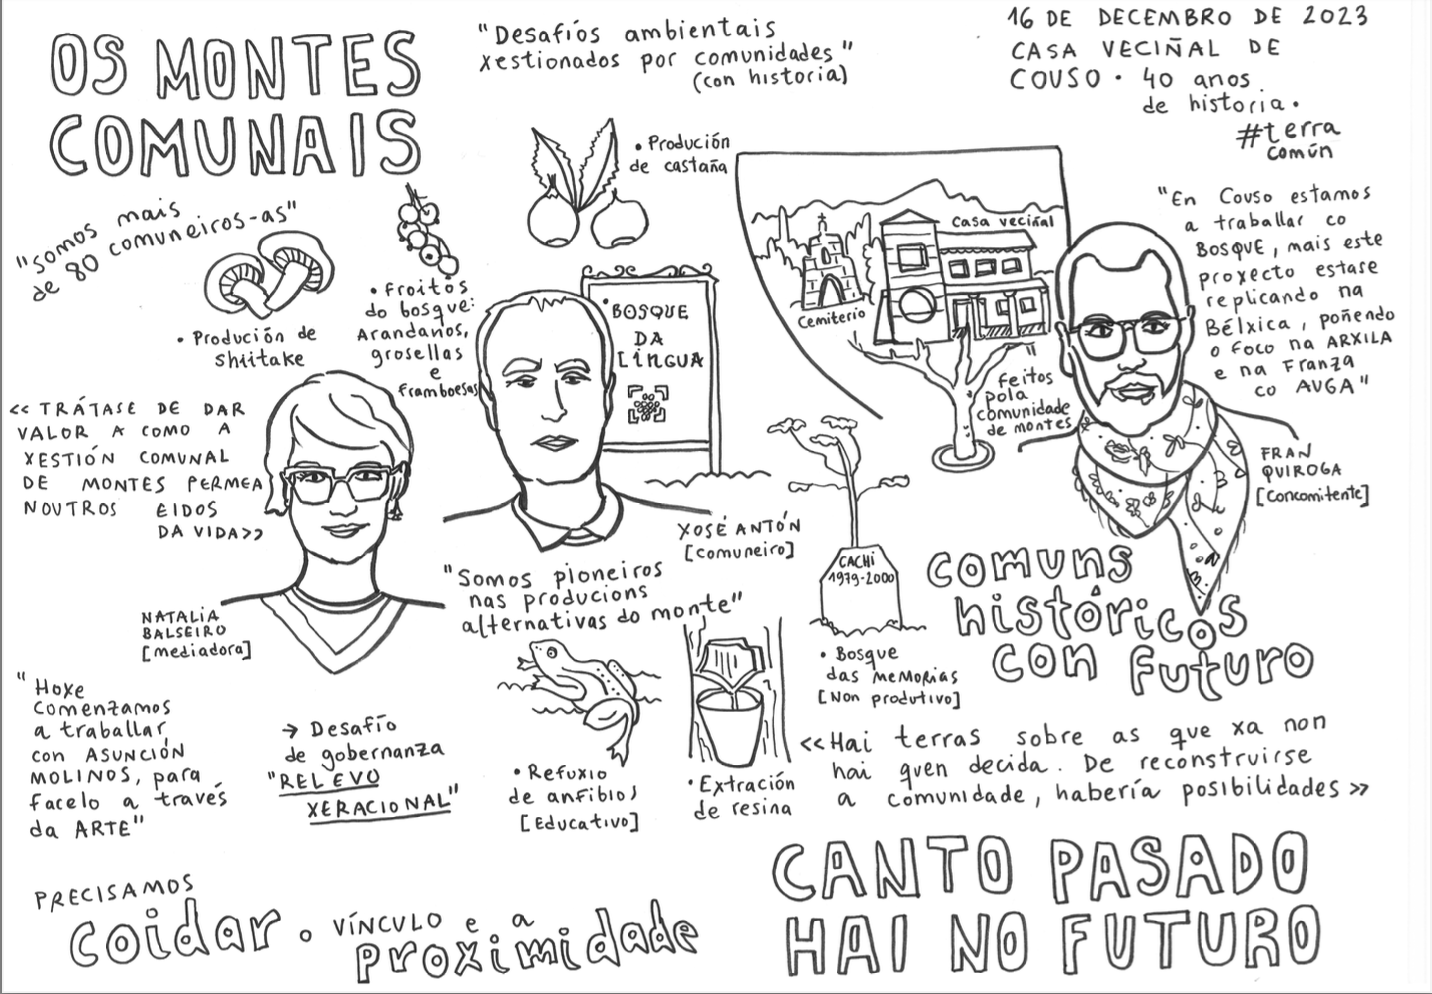 OS MONTES
COMUNAIS
"Desafíos ambientais
xestionados por comunidades"
(con historia)
16 DE DECEMBRO DE 2023
CASA VECIÑAL DE
COUSO · 40 anos
de historia.
#terra
común
"Somos mais
de 80 comuneiros-as"
• Produción de
shiitake
• Froitos
do bosque:
Arandanos,
grosellas
e
framboesas
• Produción
de castaña
• BOSQUE
DA
LINGUA
Casa veciñal
Cemiterio
"feitos
pola
comunidade
de montes
"En Couso estamos
a traballar co
BOSQUE, mais este
proxecto estase
replicando na
Bélxica, poñendo
o foco na ARXILA
e na Franza
co AUGA"
FRAN
QUIROGA
[Concomitente]
<< TRÁTASE DE DAR
VALOR A COMO A
XESTIÓN COMUNAL
DE MONTES PERMEA
NOUTROS EIDOS
DA VIDA>>
NATALIA
BALSEIRO
[mediadora]
XOSÉ ANTÓN
[comuneiro]
"Somos pioneiros
nas producions
alternativas do monte"
CACHI
1979-2000
• Bosque
das MEMORIAS
[Non produtivo]
comuns
históricos
con futuro
"Hoxe
comenzamos
a traballar
con ASUNCIÓN
MOLINOS, para
facelo a través
da ARTE"
→ Desafío
de gobernanza
"RELEVO
XERACIONAL"
• Refuxio
de anfibios
[Educativo]
• Extración
de resina
<<Hai terras sobre as que xa non
hai quen decida. De reconstruirse
a comunidade, habería posibilidades>>
PRECISAMOS
coidar. VÍNCULO e a
proximidade
CANTO PASADO
HAI NO FUTURO